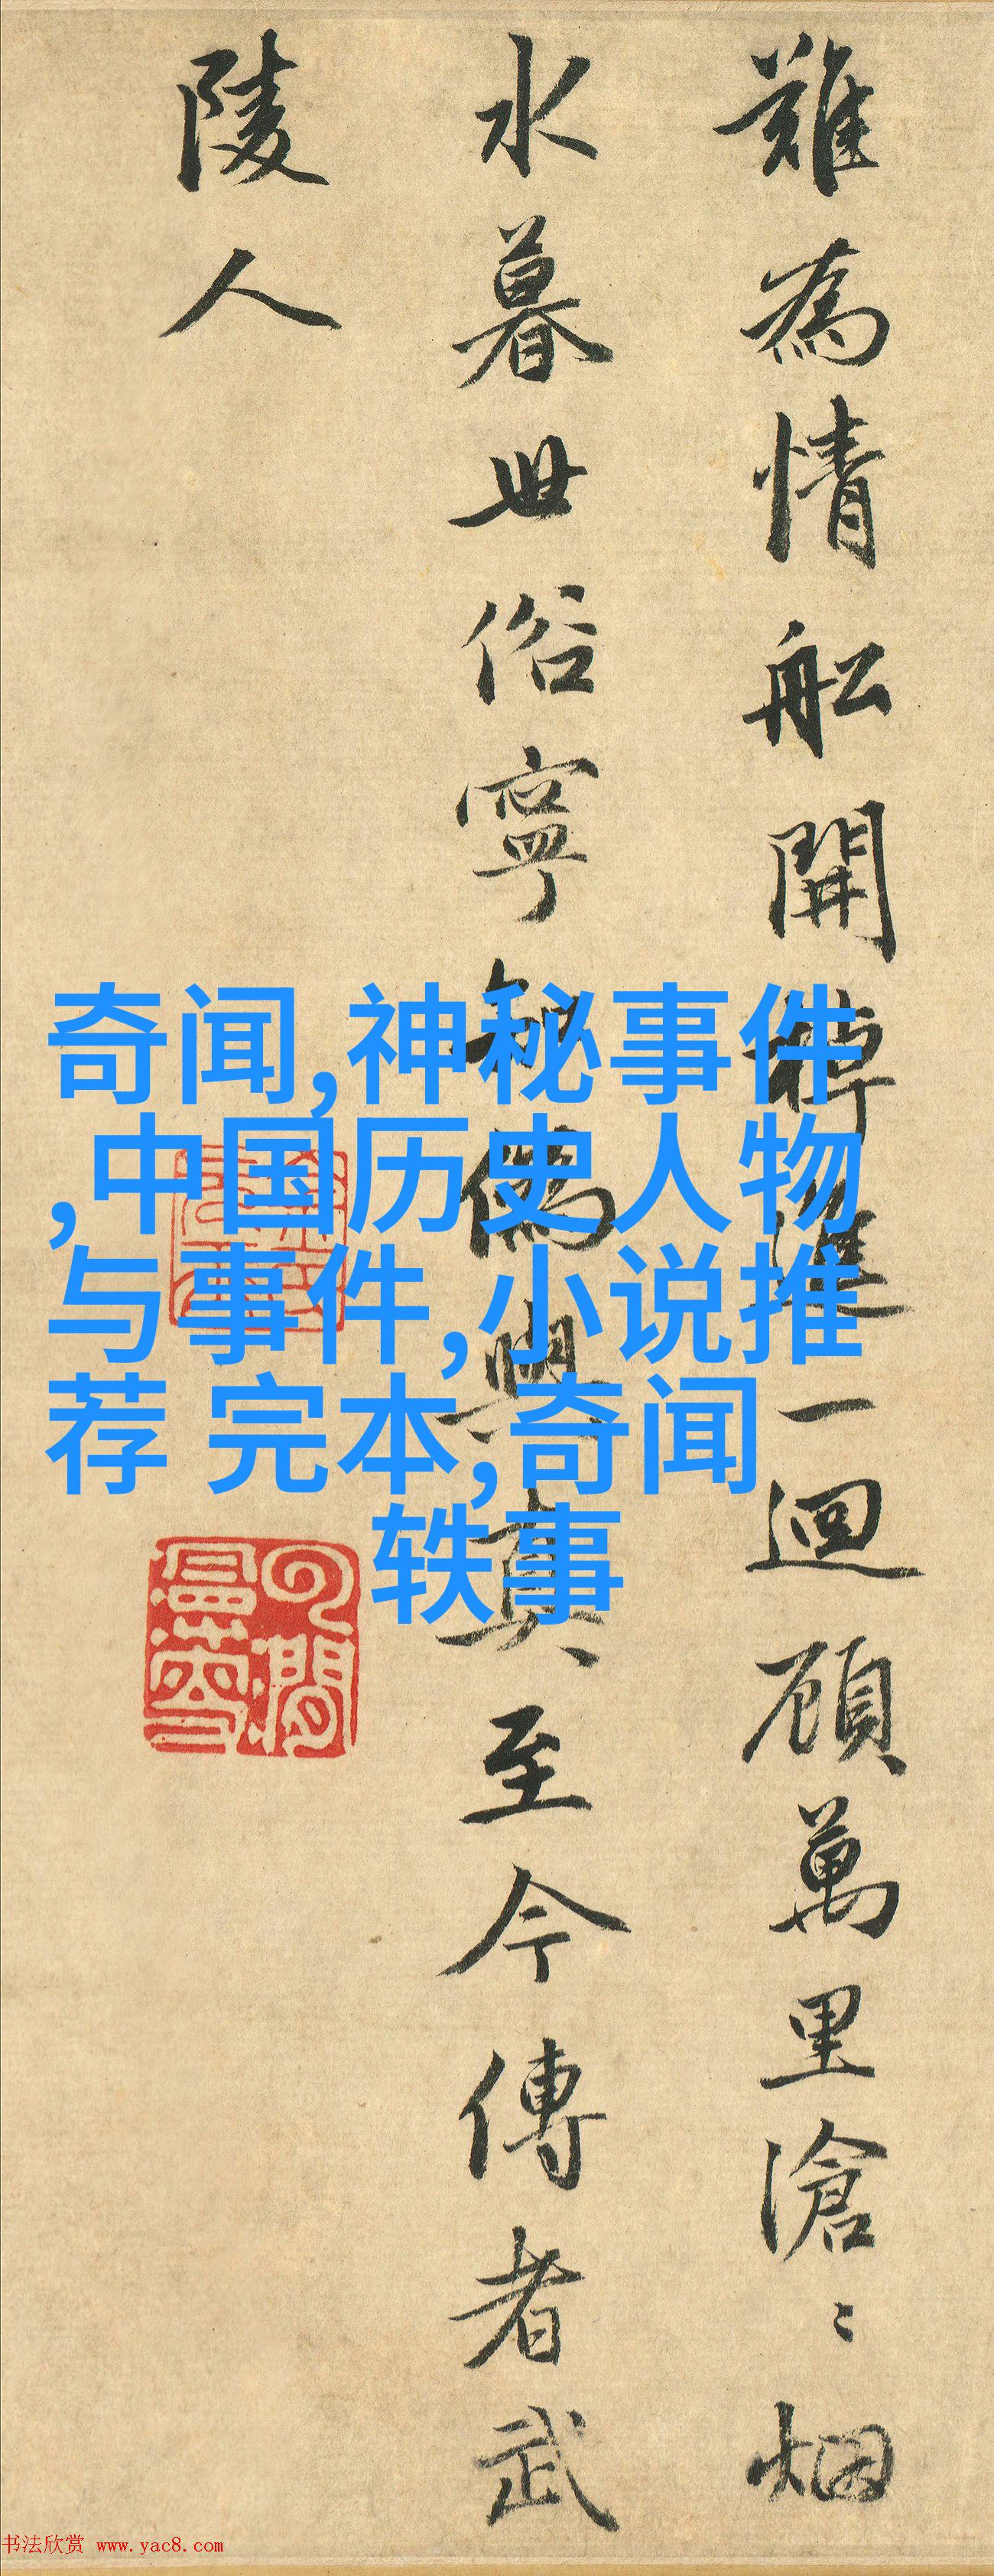 難為情舩開棹進一迴顧萬里滄〻烟
水暮世俗寧知偽與真至今傳者武
陵人
奇闻,神秘事件
,中国历史人物
与事件,小说推
荐 完本,奇闻
轶事
书法欣赏 www.yac8.com